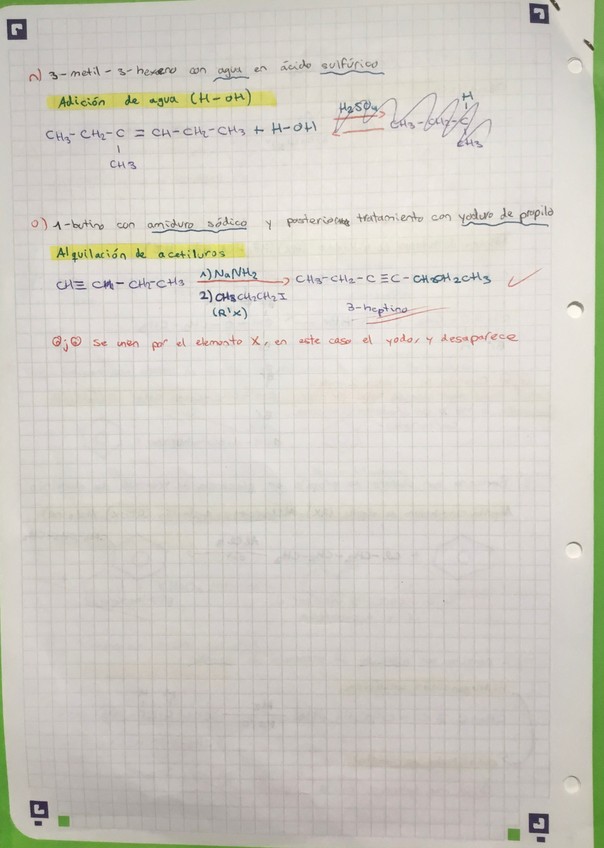 n) 3-metil-3-hexeno con agua en ácido sulfúrico
Adición de agua (H-OH)
CH3-CH2-C=CH-CH2-CH3 + H-OH H2SO4 CH3-CH2-C
H
CH3
CH3
o) 1-butino con amiduro sódico y posterior tratamiento con yoduro de propilo
Alquilación de acetiluros
CH≡C-CH2-CH3 1) NaNH2 CH3-CH2-C≡C-CH2CH2CH3
2) CH3CH2CH2I 3-heptino
(R'X)
Ojo Se unen por el elemento X, en este caso el yodo, y desaparece